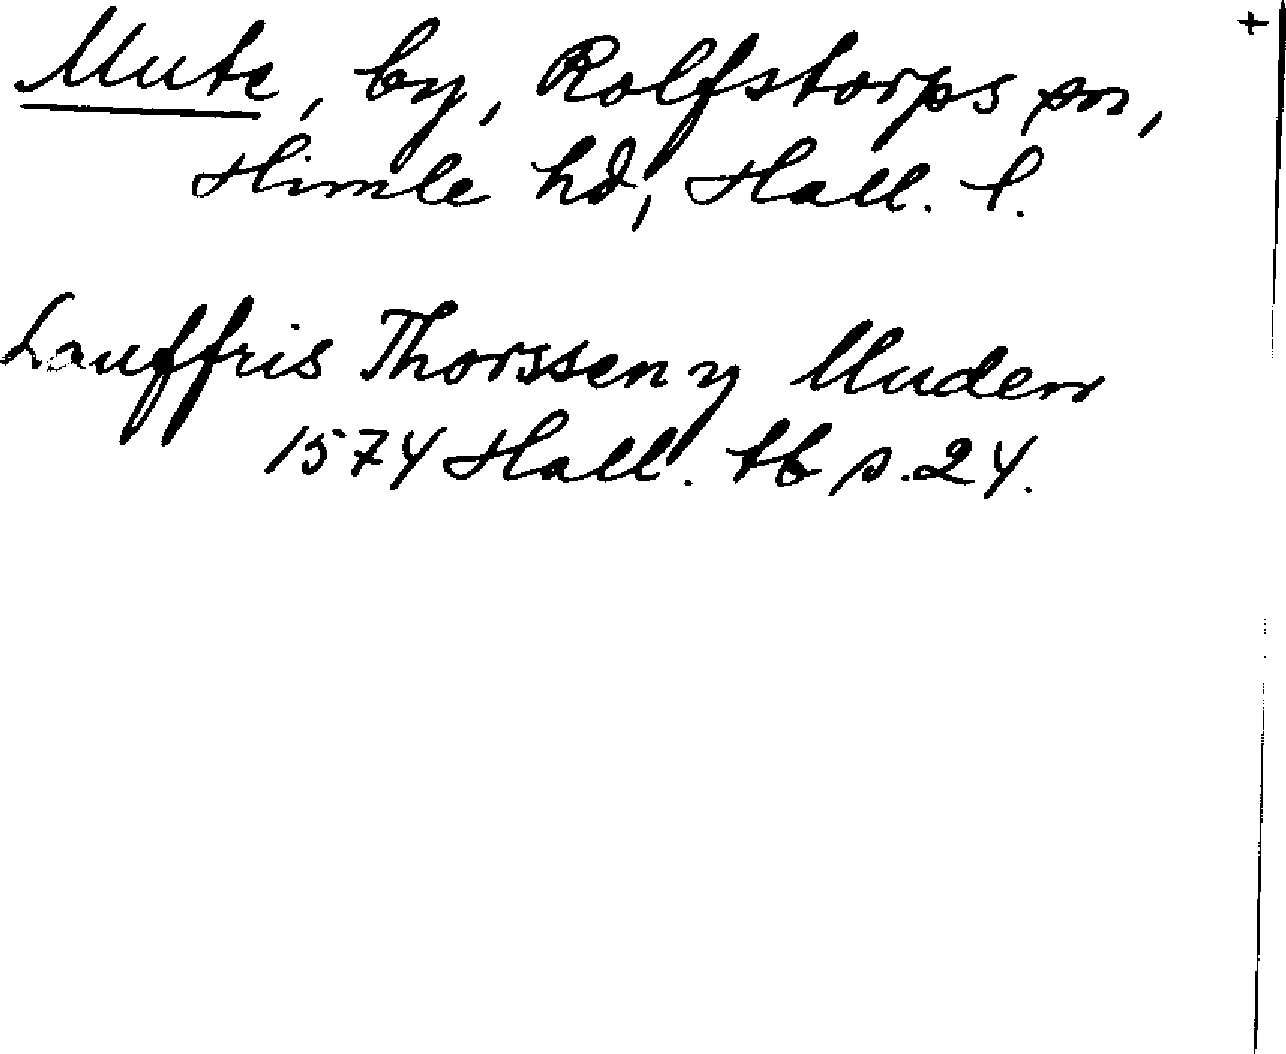 Mute, by, Rolfstorps sn, +
Himle hd, Hall. l.
Lauffris Thorssen y Muden
1574 Hall. tb s. 24.